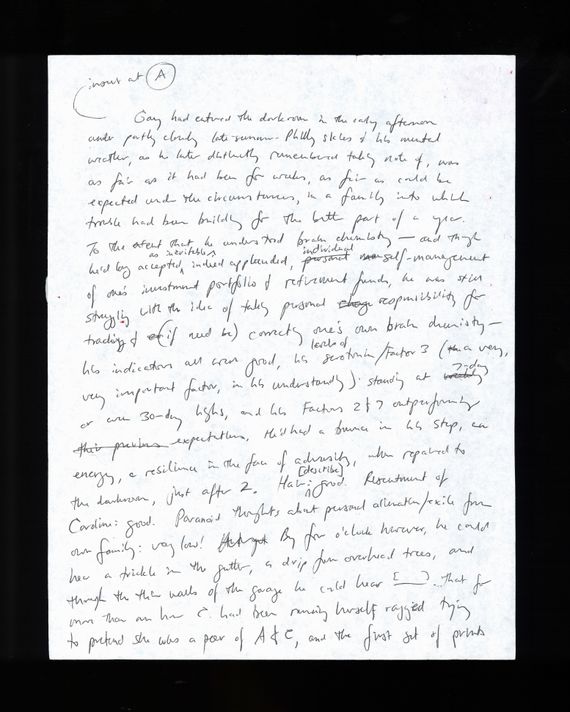 insert at (A)
Gary had entered the darkroom in the early afternoon
under partly cloudy late-summer Philly skies & his mental
weather, as he later distinctly remembered taking note of, was
as fair as it had been for weeks, as fair as could be
expected under the circumstances, in a family into which
trouble had been building for the better part of a year.
To the extent that he understood brain chemistry — and though
as inevitable individual
he'd long accepted, indeed applauded, personal self-management
of one's investment portfolio & retirement funds, he was still
struggling with the idea of taking personal responsibility for
trading & (if need be) correcting one's own brain chemistry —
levels of
his indicators all were good, his serotonin/Factor 3 (a very,
7-day
very important factor, in his understanding) standing at
or even 30-day highs, and his Factors 2 & 7 outperforming
their previous expectations. He'd had a bounce in his step, an
energy, a resilience in the face of adversity, when repaired to
[describe]
the darkroom, just after 2. Hair: good. Resentment of
Caroline: good. Paranoid thoughts about personal alienation/exile from
own family: very low! By four o'clock however, he could
hear a trickle in the gutter, a drip from overhead trees, and
through the thin walls of the garage he could hear [ ]. That for
more than an hour C. had been running herself ragged trying
to pretend she was a peer of A & C, and the first set of prints